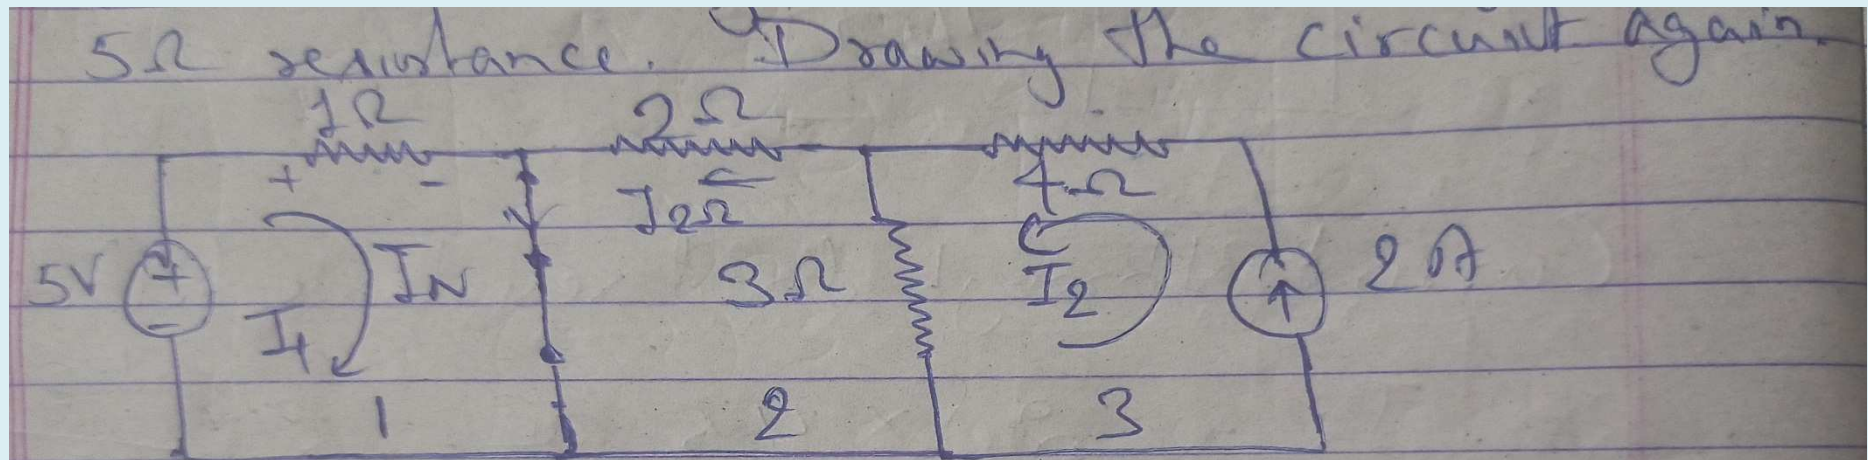 5Ω resistance. Drawing the circuit again.
1Ω 2Ω
+ - I2Ω 4Ω
5V + - I1 IN 3Ω I2 2A
1 2 3